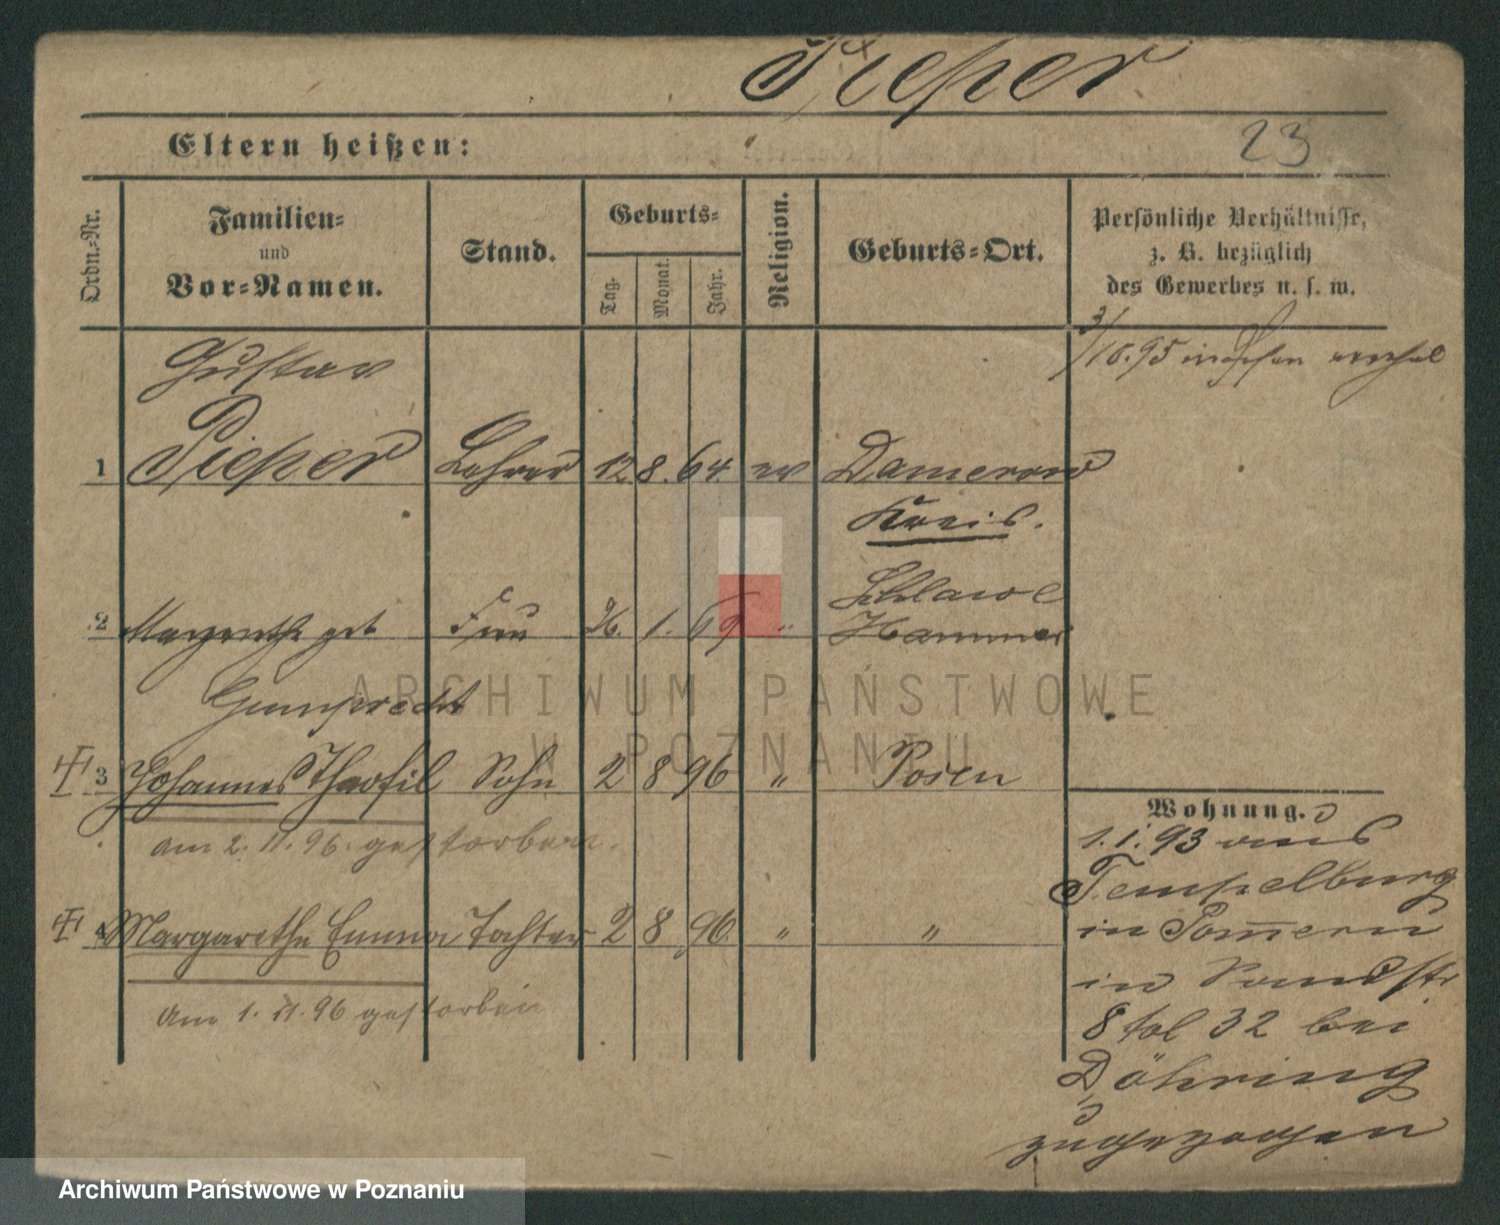 Pieper
Eltern heißen:
23
Ordn.-Nr.
Familien-
und
Vor-Namen.
Stand.
Geburts-
Tag.
Monat.
Jahr.
Religion.
Geburts-Ort.
Persönliche Verhältnisse,
z. B. bezüglich
des Gewerbes u. s. w.
Gustav
1 Pieper Lehrer 12 8. 64. ev Damerow
Kreis.
Schlawe
2 Margarethe geb Frau 26. 1. 69 " Hammer
Gumprecht
3 Johannes Theofil Sohn 2 8 96 " Posen
am 2. 11. 96. gestorben.
4 Margarethe Emma Tochter 2 8 96. " "
am 1. 11. 96 gestorben
3/10.95
Wohnung.
1.1.93 aus
Tempelburg
in Pom̅ern
in Sandstr
8 fol 32 bei
Döhring
zugezogen
ARCHIWUM PAŃSTWOWE
W POZNANIU
Archiwum Państwowe w Poznaniu